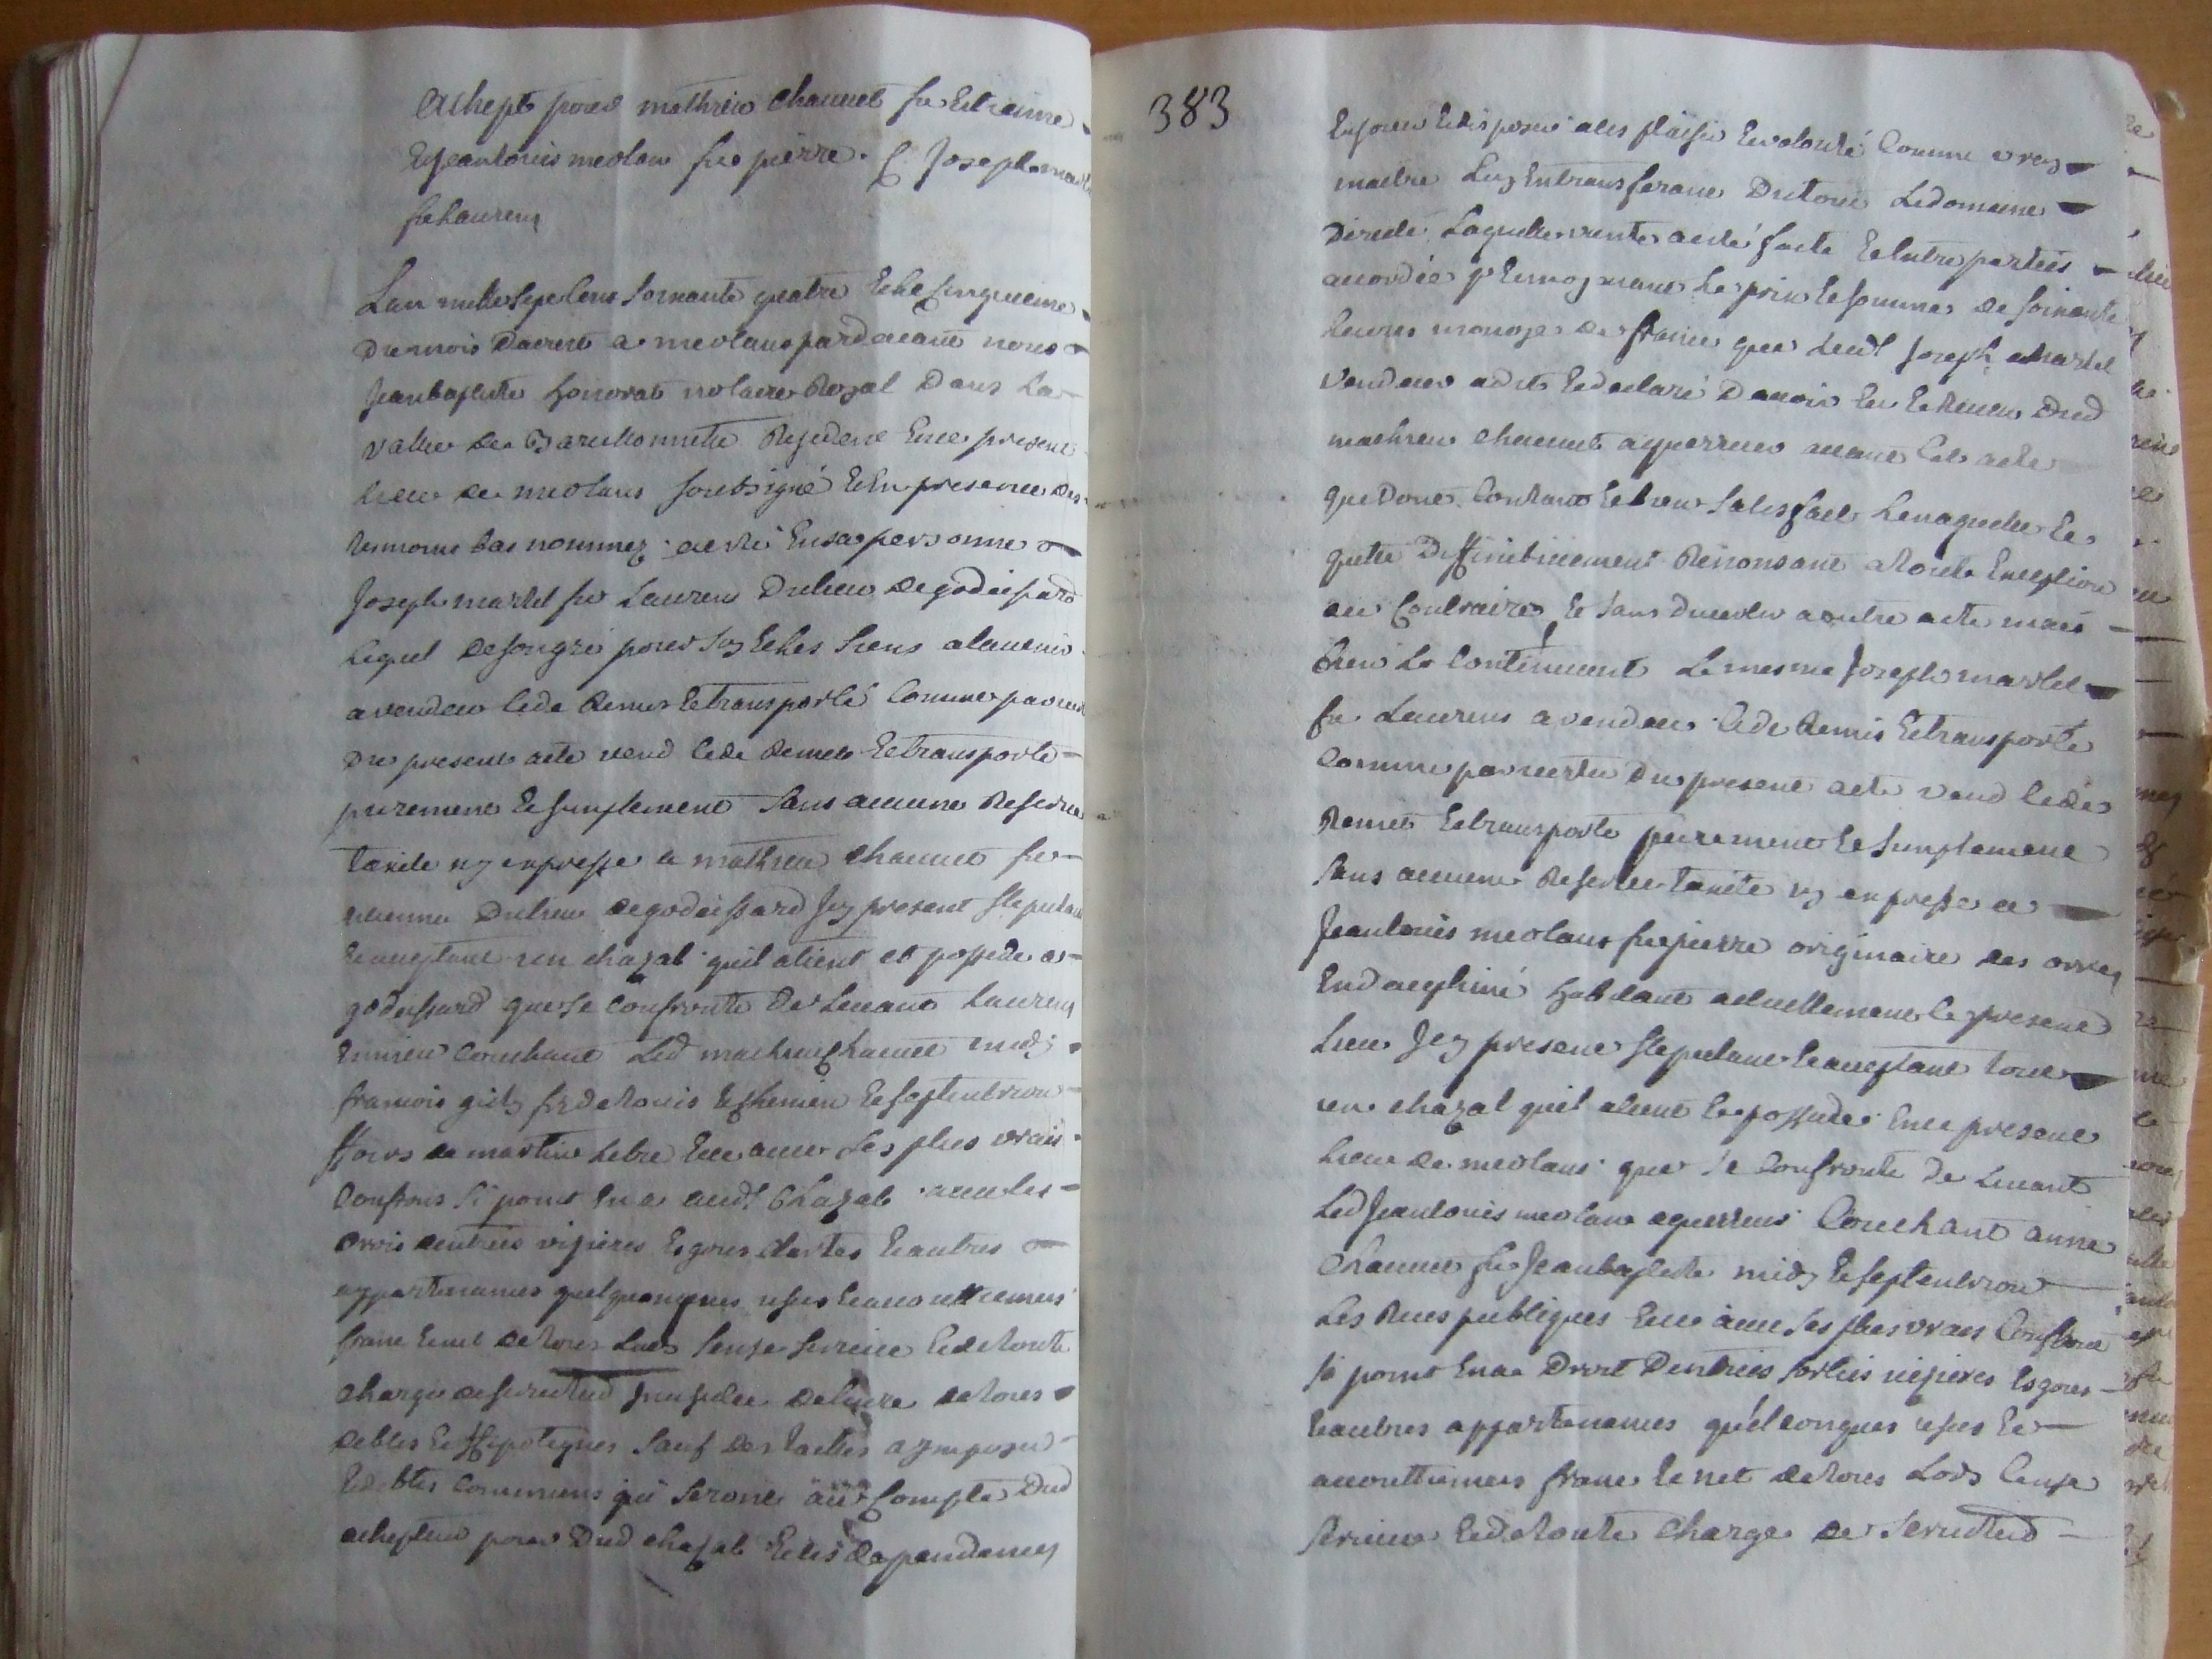 Achept pour mathieu chauvet fu Estienne
Et Jeanlouis meolan fu pierre. C. Joseph martel
fu Laurens
L'an mille sept cens soixante quatre et le cinquieme
du mois d'avril a meolans pardevant nous
Jeanbaptiste honorat notaire Royal dans la
vallée de Barcellonnette Residant en ce present
lieu de meolans soubsigné et en presence des
temoins bas nommez a esté en sa personne
Joseph martel fu Laurens du lieu de godeissard
lequel de son gré pour soy et les siens a l'avenir
a vendeu cedé remis et transporté comme par vertu
du present acte vend cede remet et transporte
purement et simplement sans aucune reserve
tacite ny expresse a mathieu chauvet fu
etienne du lieu de godeissard Icy present stipulant
et acceptant un chazal qu'il a tient et possede a
godeissard que se confronte de levant Laurens
couchant led mathieu chauvet midy
francois fu de louis et chemin et septentrion
hoirs de martin lebre et avec ses plus vrais
confrons si point en a aud chazal avec les
drois d'entrées visieres Esgous clartes et autres
appartenances quelquonques uses et accouttiemens
franc et net de tous lods cense service et de toute
charge de servitud de
debtes et hipoteques sauf des tailles a imposer
et debtes communs qui seront au compte dud
achepteur pour dud chazal et ses dependances
383
En jouir et disposer a ses plaisir et volonté comme vray
maitre luy en transferant du tout le domaine
directe laquelle vente a esté faite et entre parties
accordée pr et moyenant le prix et somme de soixante
livres monoye de france que led Joseph martel
vendeur a dit et declaré d'avoir eu et receu dud
mathieu chauvet apperceu avant cet acte
que donc contant et bien satisfait l'en aquitte et
quitte diffinitivement Renonsant a toute exeption
au contraire et sans divertir a autre acte mais
bien le continuant le mesme Joseph martel
fu Laurens a vendeu cedé remis et transporté
comme par vertu du present acte vend cede
remet et transporte purement et simplement
sans aucune reserve tacite ny expresse a
Jeanlouis meolans fu pierre originaire des orres
En dauphiné habitant actuellement le present
lieu Icy present stipulant et acceptant tout
un chazal qu'il a tient et possede en ce present
lieu de meolans que se confronte de levant
led Jeanlouis meolans couchant anne
chauvet fu Jeanbaptiste midy et septentrion
les Rues publiques et avec ses plus vrais confrons
si point en a droit d'entrées sorties visieres Esgous
et autres appartenances quelconques uses et
accouttiemens franc et net de tous lods cense
service et de toute charge de servitud